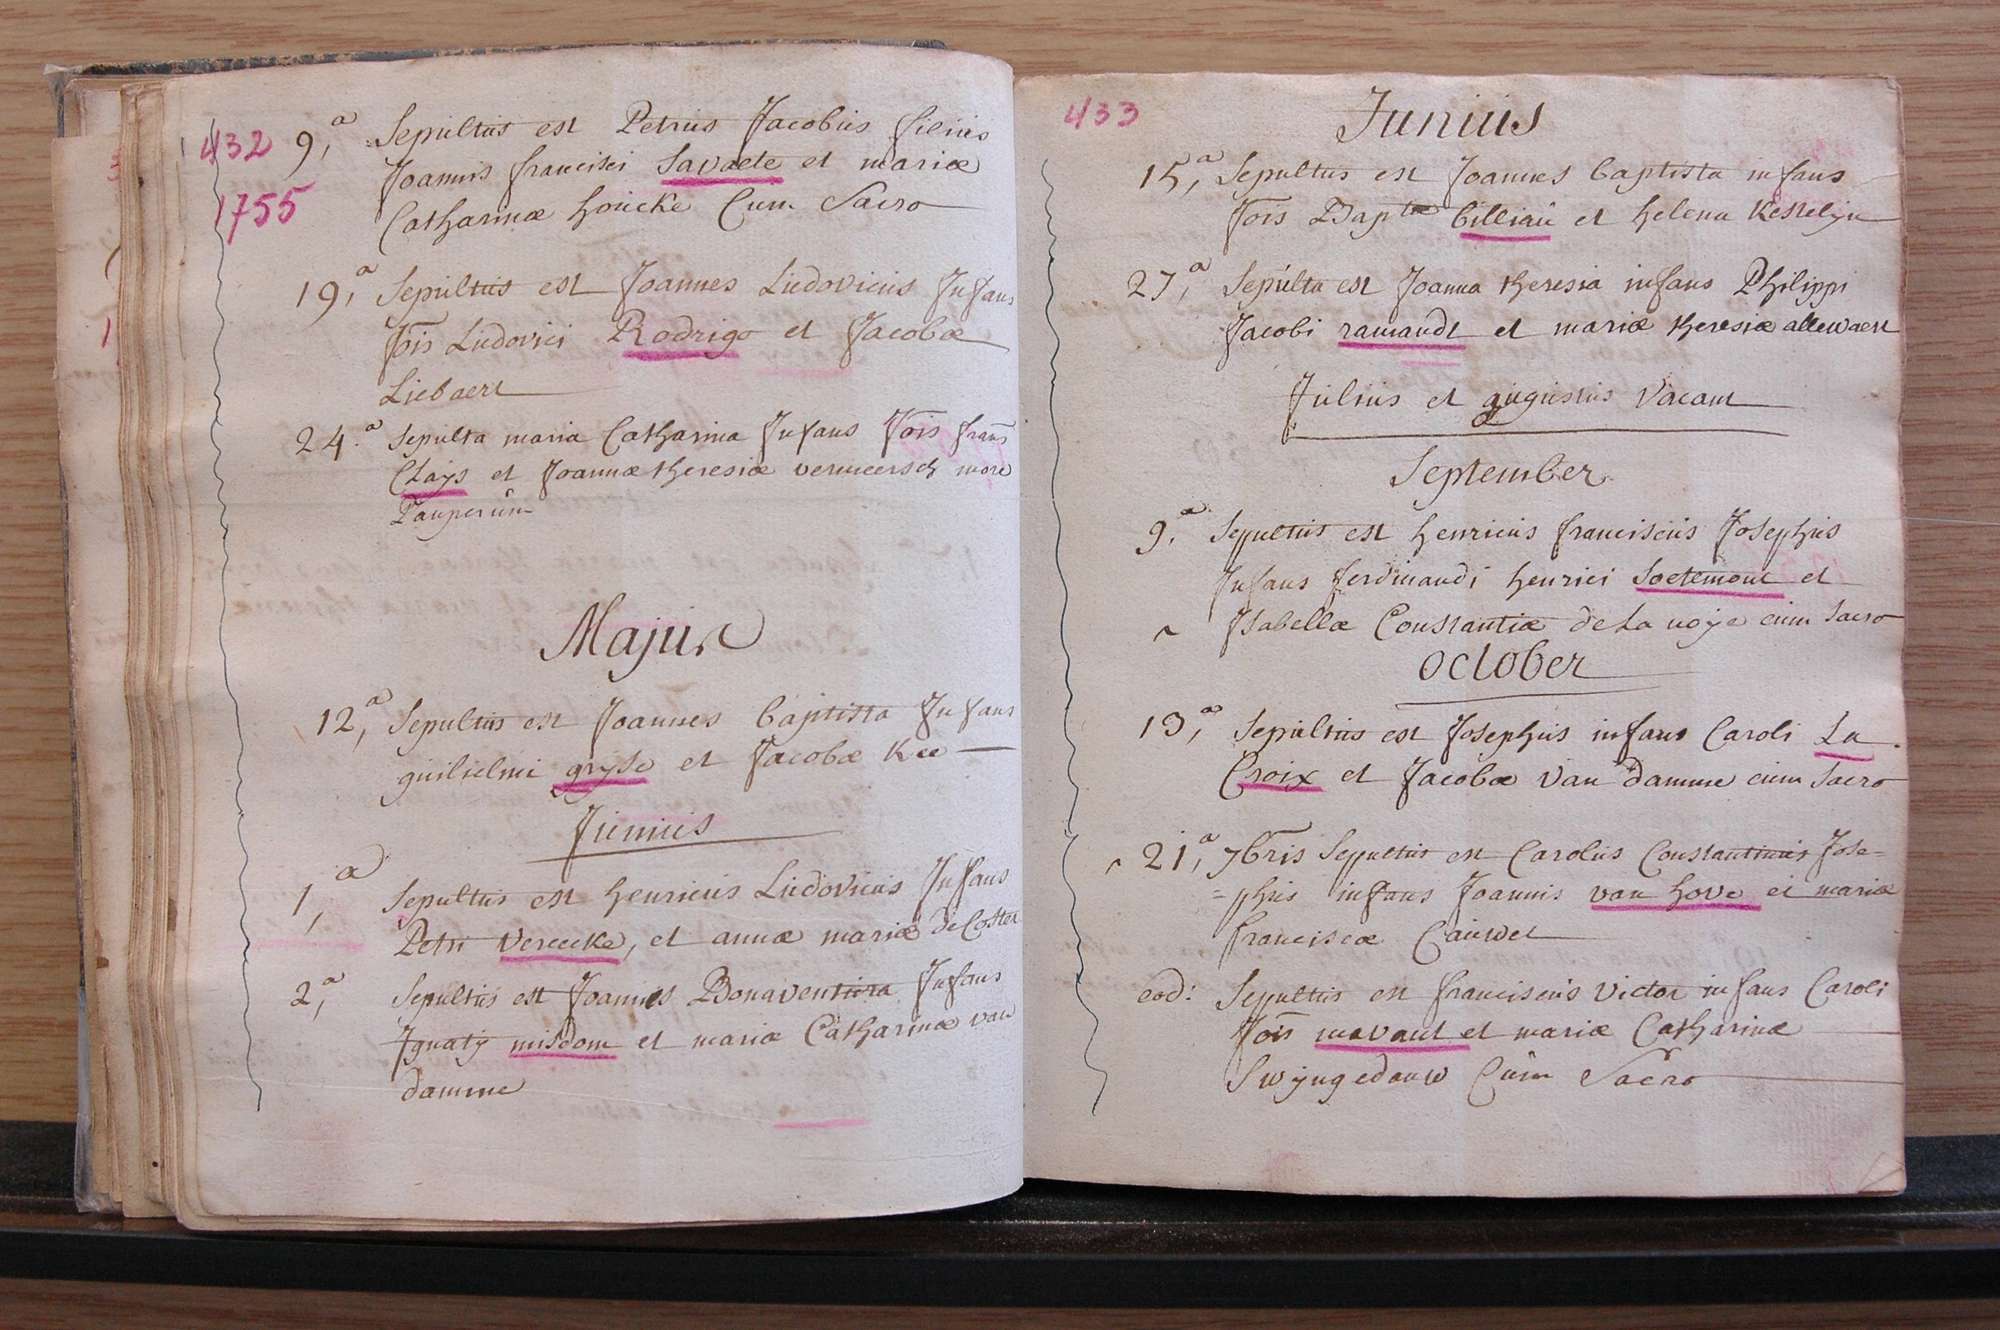 432
1755
9,a Sepultus est Petrus Jacobus filius
Joannis francisci Savaete et mariæ
Catharinæ houcke Cum Sacro
19,a Sepultus est Joannes Ludovicus Infans
Jois Ludovici Rodrigo et Jacobæ
Liebaert
24.a Sepulta maria Catharina Infans Jois frans
Clays et Joannæ theresiæ vermeersch more
Pauperum
Majus
12,a Sepultus est Joannes baptista Infans
guilielmi gryse et Jacobæ Kee
Junius
1,a Sepultus est henricus Ludovicus Infans
Petri Vereecke, et annæ mariæ de Coster
2,a Sepultus est Joannes Bonaventura Infans
Ignatij misdom et mariæ Catharinæ van
damme
433
Junius
15,a Sepultus est Joannes baptista infans
Jois Baptæ billiau et helena Kestelyn
27,a Sepulta est Joanna theresia infans Philippi
Jacobi ramaudt et mariæ theresiæ allewaert
Julius et augustus Vacant
September
9.a Sepultus est henricus franciscus Josephus
Infans ferdinandi henrici Soetemont et
Isabellæ Constantiæ de La noye cum sacro
October
13,a Sepultus est Josephus infans Caroli La
Croix et Jacobæ Van damme cum sacro
21,a 7bris Sepultus est Carolus Constantinus Jose=
=phus infans Joannis van hove et mariæ
franciscæ Cauwet
eod: Sepultus est franciscus Victor infans Caroli
Jois mavaut et mariæ Catharinæ
Swyngedauw Cum Sacro